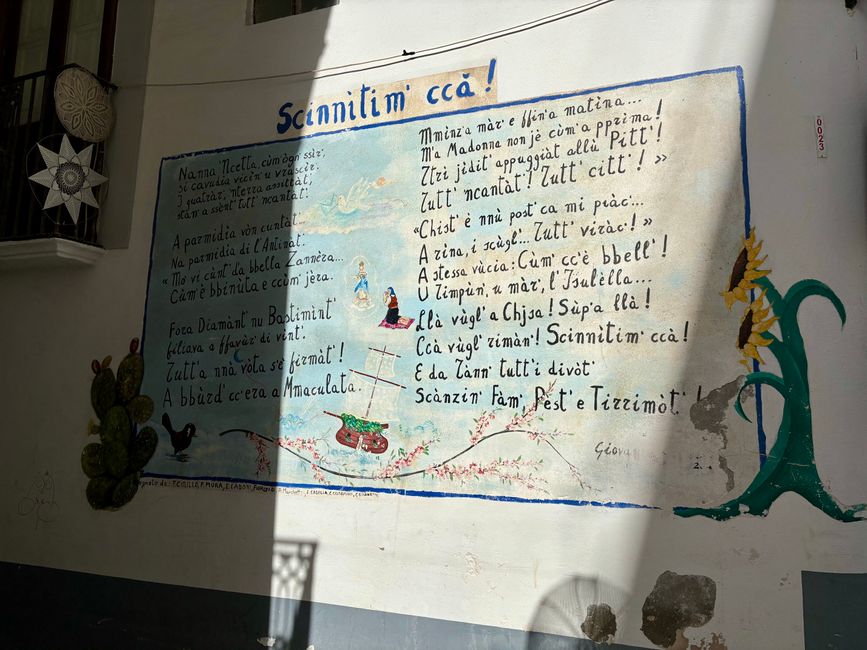 Scinnitim' ccà!
Nanna 'Ncetta, cùm'ògn'ssèr',
si cavudìa vicin'u vrascìr.
I guatràr', nterra assittàt',
stàm'a ssènt' tutt' ncantat'.
A parmidìa vòn cuntàt'...
Na parmidìa di l'Antinàt'.
« Mo' vi cùnt' da bbella Zannèra...
Cùm'è bbinùta e ccùm' jèra.
Fora Diamànt' nu Bastimìnt'
filiava a ffavùr' di vìnt'.
Tutt'a nnà vòta s'è firmàt'!
A bbùrd' cc'era a Mmaculata.
Mminz'a màr' e ffin'a matina...
M'a Madonna non jè cùm'a pprima!
Ztri jìdit' appuggiàt' allù Pitt'!
Tutt' 'ncantàt'! Tutt' citt'! »
«Chist' è nnù post' ca mi piàc'...
A rina, i scùgl'... Tutt' viràc'! »
A stessa vùcia: Cùm' cc'è bbell'!
U Timpùn', u màr', l'Isulèlla...
Llà vùgl' a Chjsa! Sùp'a llà!
Ccà vùgl' rimàn'! Scinnìtim' ccà!
E da tànn' tutt'i divòt'
Scànzin' Fàm', Pèst' e Tirrimòt'!
Giovan
2
0023